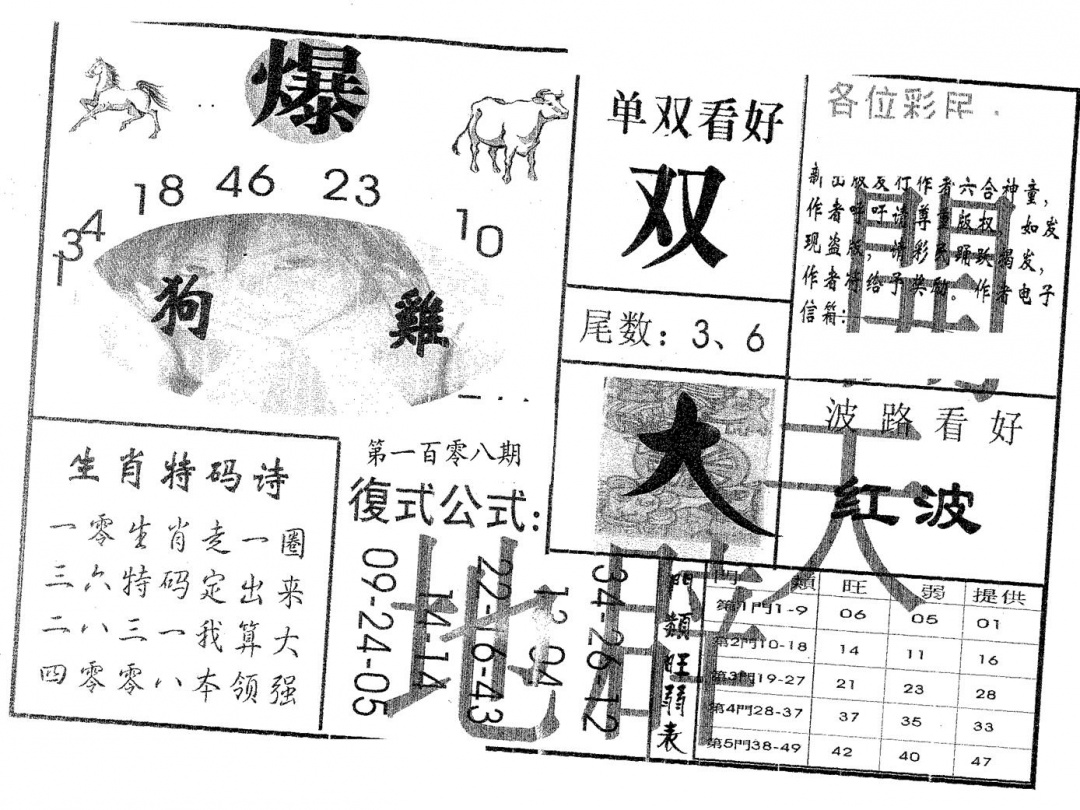 爆
18 46 23
34
10
1
狗 雞
单双看好
双
尾数：3、6
各位彩民
作者呼吁请尊重版权，如发
现盗版，请彩民踊跃揭发，
作者将给予奖励。作者电子
信箱：
大
波路看好
红波
生肖特码诗
一零生肖走一圈
三六特码定出来
二八三一我算大
四零零八本领强
第一百零八期
復式公式：
09-24-05
14-14
22-16-43
12 04
34-26-12
門類旺弱表
門 類 旺 弱 提供
第1門1-9 06 05 01
第2門10-18 14 11 16
第3門19-27 21 23 28
第4門28-37 37 35 33
第5門38-49 42 40 47